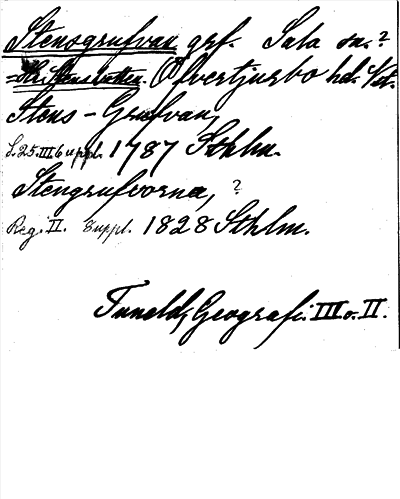 Stensgrufvan grf. Sala sn.?
Öfvertjurbo hd. Vst.
Stens-Grufvan,
S. 25. III. 6 uppl. 1787 Sthlm.
Stengrufvorna, ?
Reg. II. 8 uppl. 1828 Sthlm.
Tuneld, Geografi. III o. II.